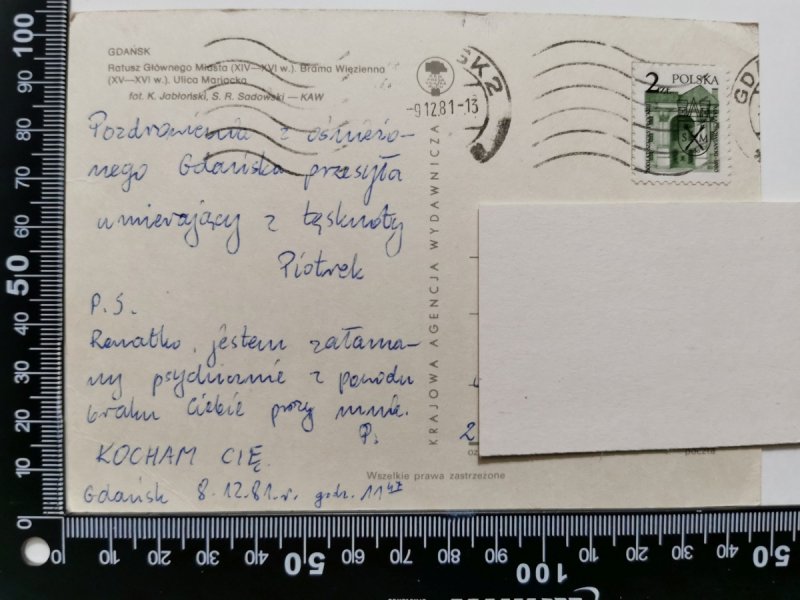 GDAŃSK
Ratusz Głównego Miasta (XIV—XVI w.). Brama Więzienna
(XV—XVI w.). Ulica Mariacka
fot. K. Jabłoński, S. R. Sadowski — KAW
Pozdrowienia z ośnieżo-
nego Gdańska przesyła
umierający z tęsknoty
Piotrek
P.S.
Renatko, jestem załama-
ny psychicznie z powodu
braku Ciebie przy mnie.
P.
KOCHAM CIĘ
Gdańsk 8.12.81.r. godz. 11 47
Wszelkie prawa zastrzeżone
KRAJOWA AGENCJA WYDAWNICZA
SK 2
-9.12.81-13
2 ZŁ POLSKA
GD
2
poczta
100
90
80
70
60
50
40
30
20
10
0
0
10
20
30
40
50
60
70
80
90
100
10
20
30
40
50